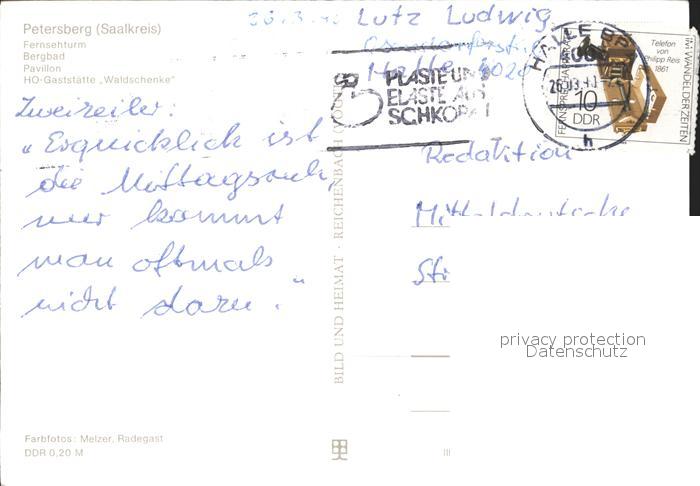 Petersberg (Saalkreis)
Fernsehturm
Bergbad
Pavillon
HO-Gaststätte „Waldschenke"
26.3.90 Lutz Ludwig
Halle 4020
PLASTE UND
ELASTE AUS
SCHKOPAU
HALLE
26.03.90
h
FERNSPRECHAPPARATE
10
DDR
Telefon
von
Philipp Reis
1861
IM WANDEL DER ZEITEN
Zweizeiler:
„Erquicklich ist
die Mittagsruh,
nur kommt
man oftmals
nicht dazu."
Redaktion
Mitteldeutsche
BILD UND HEIMAT · REICHENBACH (VOGTL)
privacy protection
Datenschutz
Farbfotos: Melzer, Radegast
DDR 0,20 M
III